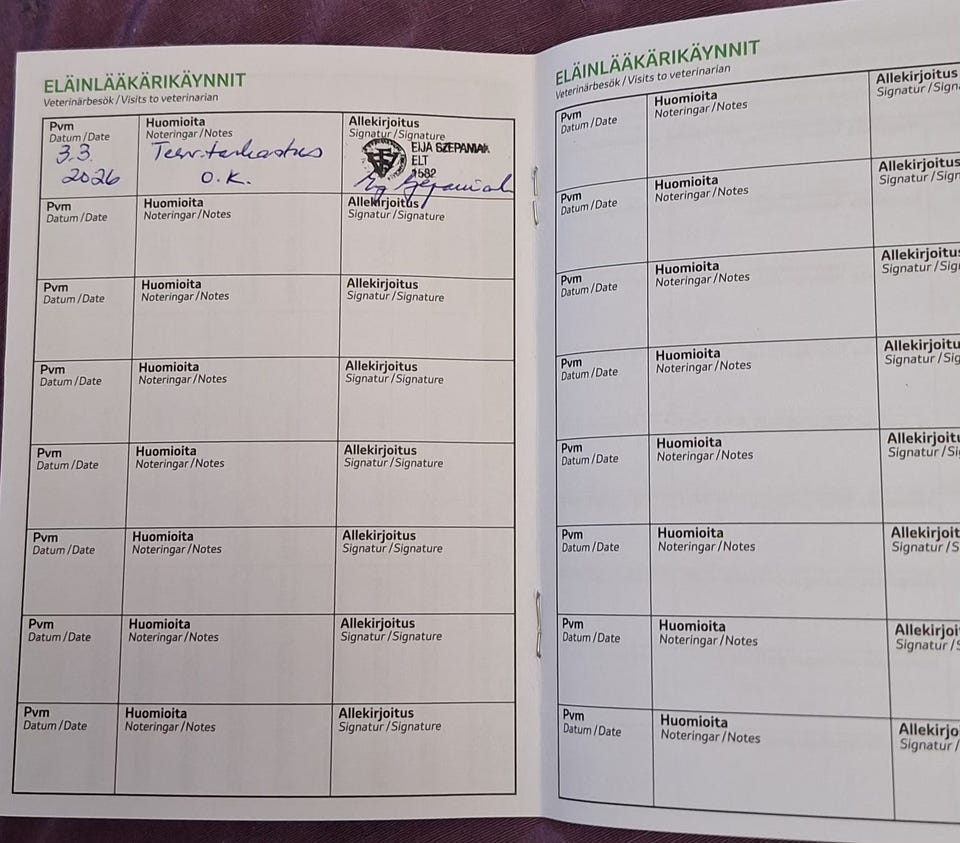 ELÄINLÄÄKÄRIKÄYNNIT
Veterinärbesök / Visits to veterinarian
Pvm Huomioita Allekirjoitus
Datum / Date Noteringar / Notes Signatur / Signature
3.3. Terv.tarkastus EIJA SZEPANIAK
ELT
2026 O.K. 1582
Pvm Huomioita Allekirjoitus
Datum / Date Noteringar / Notes Signatur / Signature
Pvm Huomioita Allekirjoitus
Datum / Date Noteringar / Notes Signatur / Signature
Pvm Huomioita Allekirjoitus
Datum / Date Noteringar / Notes Signatur / Signature
Pvm Huomioita Allekirjoitus
Datum / Date Noteringar / Notes Signatur / Signature
Pvm Huomioita Allekirjoitus
Datum / Date Noteringar / Notes Signatur / Signature
Pvm Huomioita Allekirjoitus
Datum / Date Noteringar / Notes Signatur / Signature
Pvm Huomioita Allekirjoitus
Datum / Date Noteringar / Notes Signatur / Signature
ELÄINLÄÄKÄRIKÄYNNIT
Veterinärbesök / Visits to veterinarian
Pvm Huomioita Allekirjoitus
Datum / Date Noteringar / Notes Signatur / Sign
Pvm Huomioita Allekirjoitus
Datum / Date Noteringar / Notes Signatur / Sign
Pvm Huomioita Allekirjoitus
Datum / Date Noteringar / Notes Signatur / Sig
Pvm Huomioita Allekirjoitu
Datum / Date Noteringar / Notes Signatur / Sig
Pvm Huomioita Allekirjoitu
Datum / Date Noteringar / Notes Signatur / Sig
Pvm Huomioita Allekirjoit
Datum / Date Noteringar / Notes Signatur / S
Pvm Huomioita Allekirjoi
Datum / Date Noteringar / Notes Signatur / S
Pvm Huomioita Allekirjo
Datum / Date Noteringar / Notes Signatur /